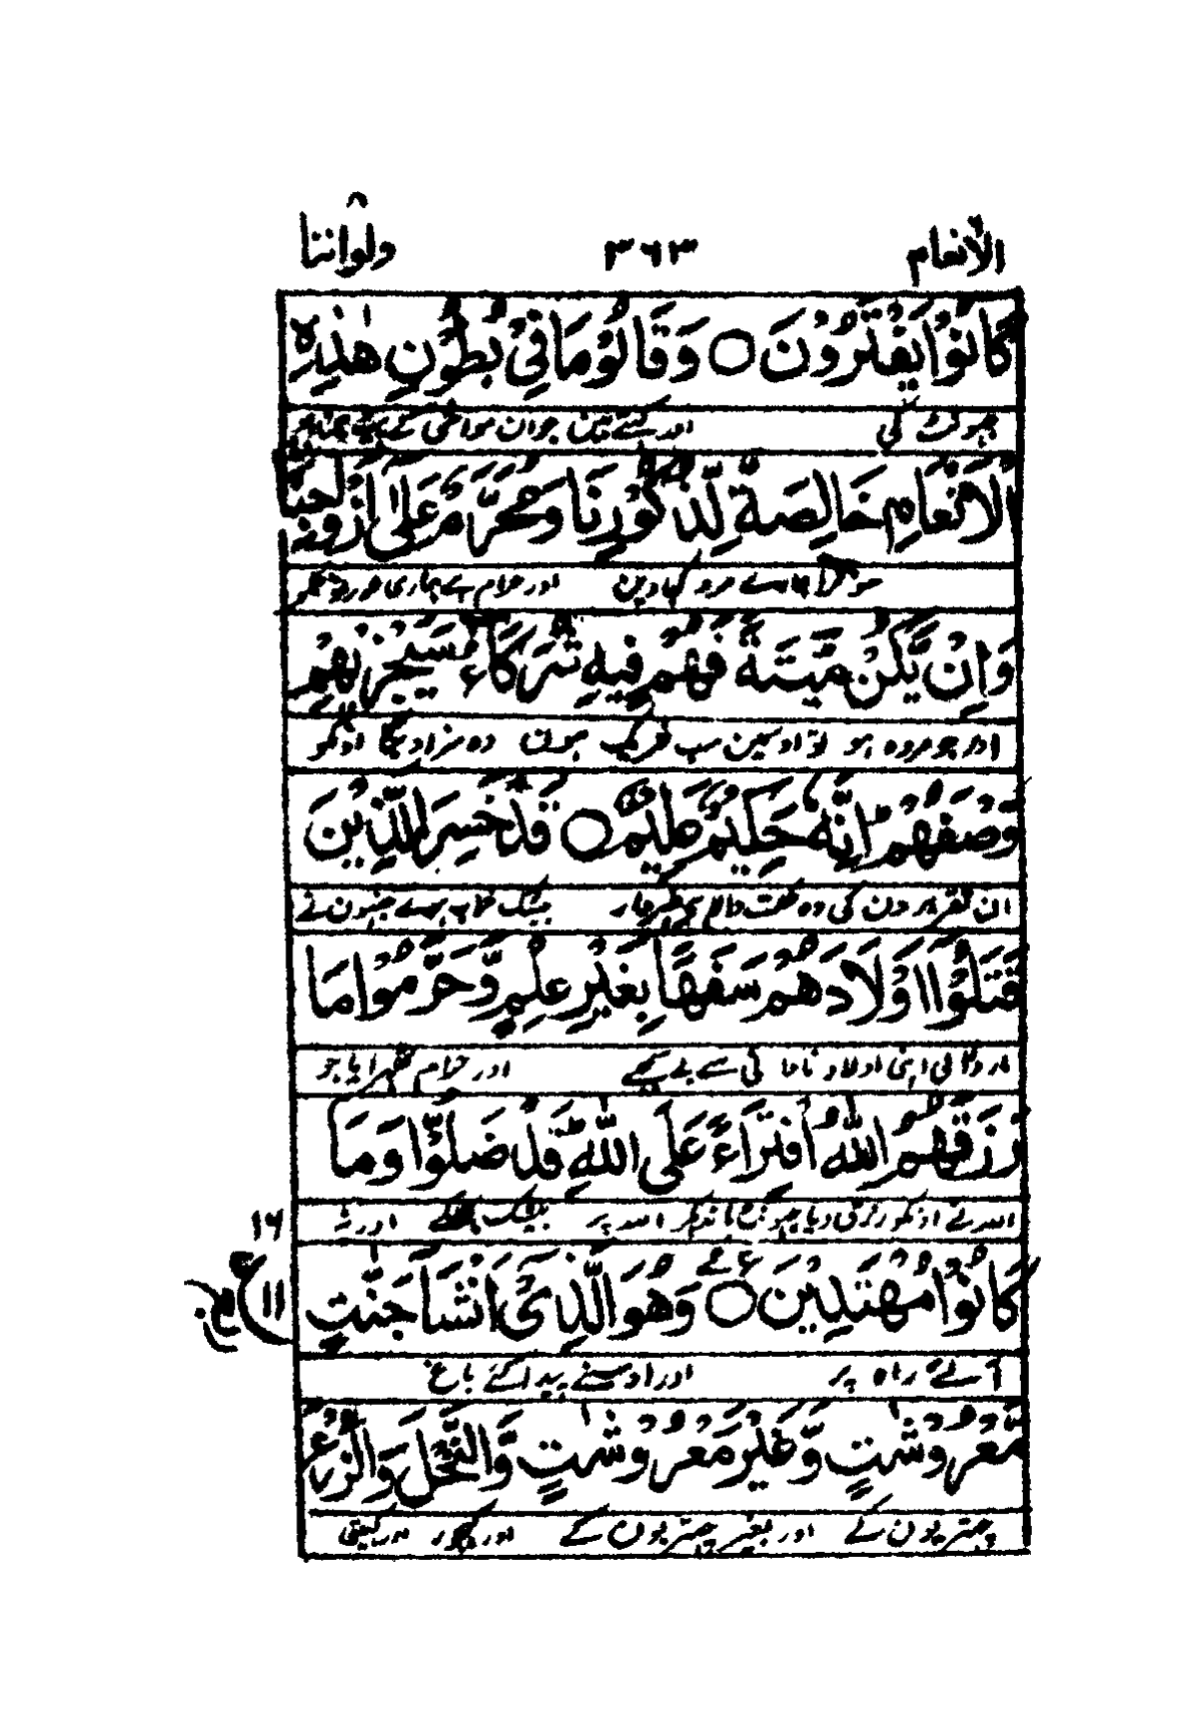 الانعام ۳۶۳ ولواننا
كَانُوْا يَفْتَرُوْنَ ○ وَقَالُوْا مَا فِيْ بُطُوْنِ هٰذِهِ
جھوٹ کی اور کہتے ہین جو ان مواشی کے پیٹ
الْاَنْعَامِ خَالِصَةٌ لِّذُكُوْرِنَا وَمُحَرَّمٌ عَلٰى اَزْوَاجِنَا
سو مرد کھاوین اور حرام ہے ہماری عورتونکو
وَاِنْ يَّكُنْ مَّيْتَةً فَهُمْ فِيْهِ شُرَكَآءُ سَيَجْزِيْهِمْ
اور جو مردہ ہو تو اوسمین سب شریک ہون وہ سزا دیگا اونکو
وَصْفَهُمْ اِنَّهٗ حَكِيْمٌ عَلِيْمٌ ○ قَدْ خَسِرَ الَّذِيْنَ
ان تقریرون کی وہ حکمت والا ہے خبردار بیشک خراب ہوے جنہون نے
قَتَلُوْٓا اَوْلَادَهُمْ سَفَهًا بِغَيْرِ عِلْمٍ وَّحَرَّمُوْا مَا
مار ڈالی اپنی اولاد نادانی سے بے سمجھے اور حرام ٹھہرایا جو
رَزَقَهُمُ اللّٰهُ افْتِرَآءً عَلَى اللّٰهِ قَدْ ضَلُّوْا وَمَا
اللہ نے اونکو رزق دیا جھوٹ باندھکر اللہ پر بیشک بہکے اور نہ
۱۶
كَانُوْا مُهْتَدِيْنَ ○ وَهُوَ الَّذِيْٓ اَنْشَاَ جَنّٰتٍ
ع ۱۱
آئے راہ پر اور اوسنے پیدا کئے باغ
مَّعْرُوْشٰتٍ وَّغَيْرَ مَعْرُوْشٰتٍ وَّالنَّخْلَ وَالزَّرْعَ
چھتریون کے اور بغیر چھتریون کے اور کھجور اور کھیتی